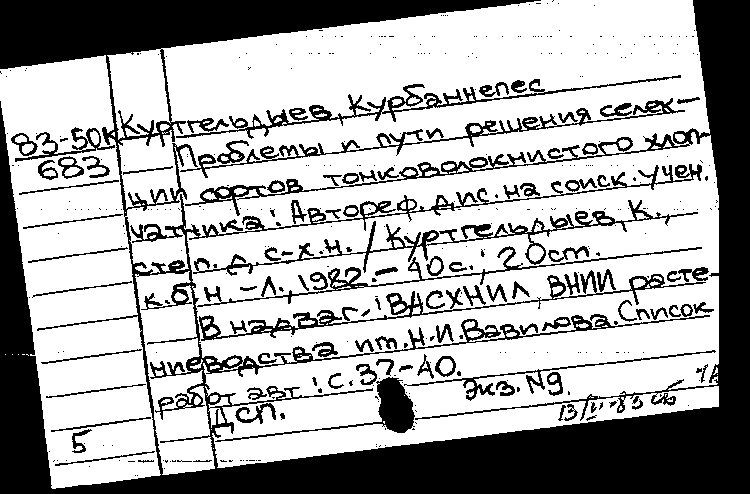 Куртгельдыев, Курбаннепес
83-50К
683
Проблемы и пути решения селек-
ции сортов тонковолокнистого хлоп-
чатника: Автореф. дис. на соиск. учен.
степ. д. с-х.н. / Куртгельдыев, К.,
к.б.н. - Л., 1982. - 40с.; 20см.
В надзаг.: ВАСХНИЛ, ВНИИ расте-
ниеводства им. Н.И. Вавилова. Список
работ авт.: с. 37-40.
ДСП.
Экз. N9.
5